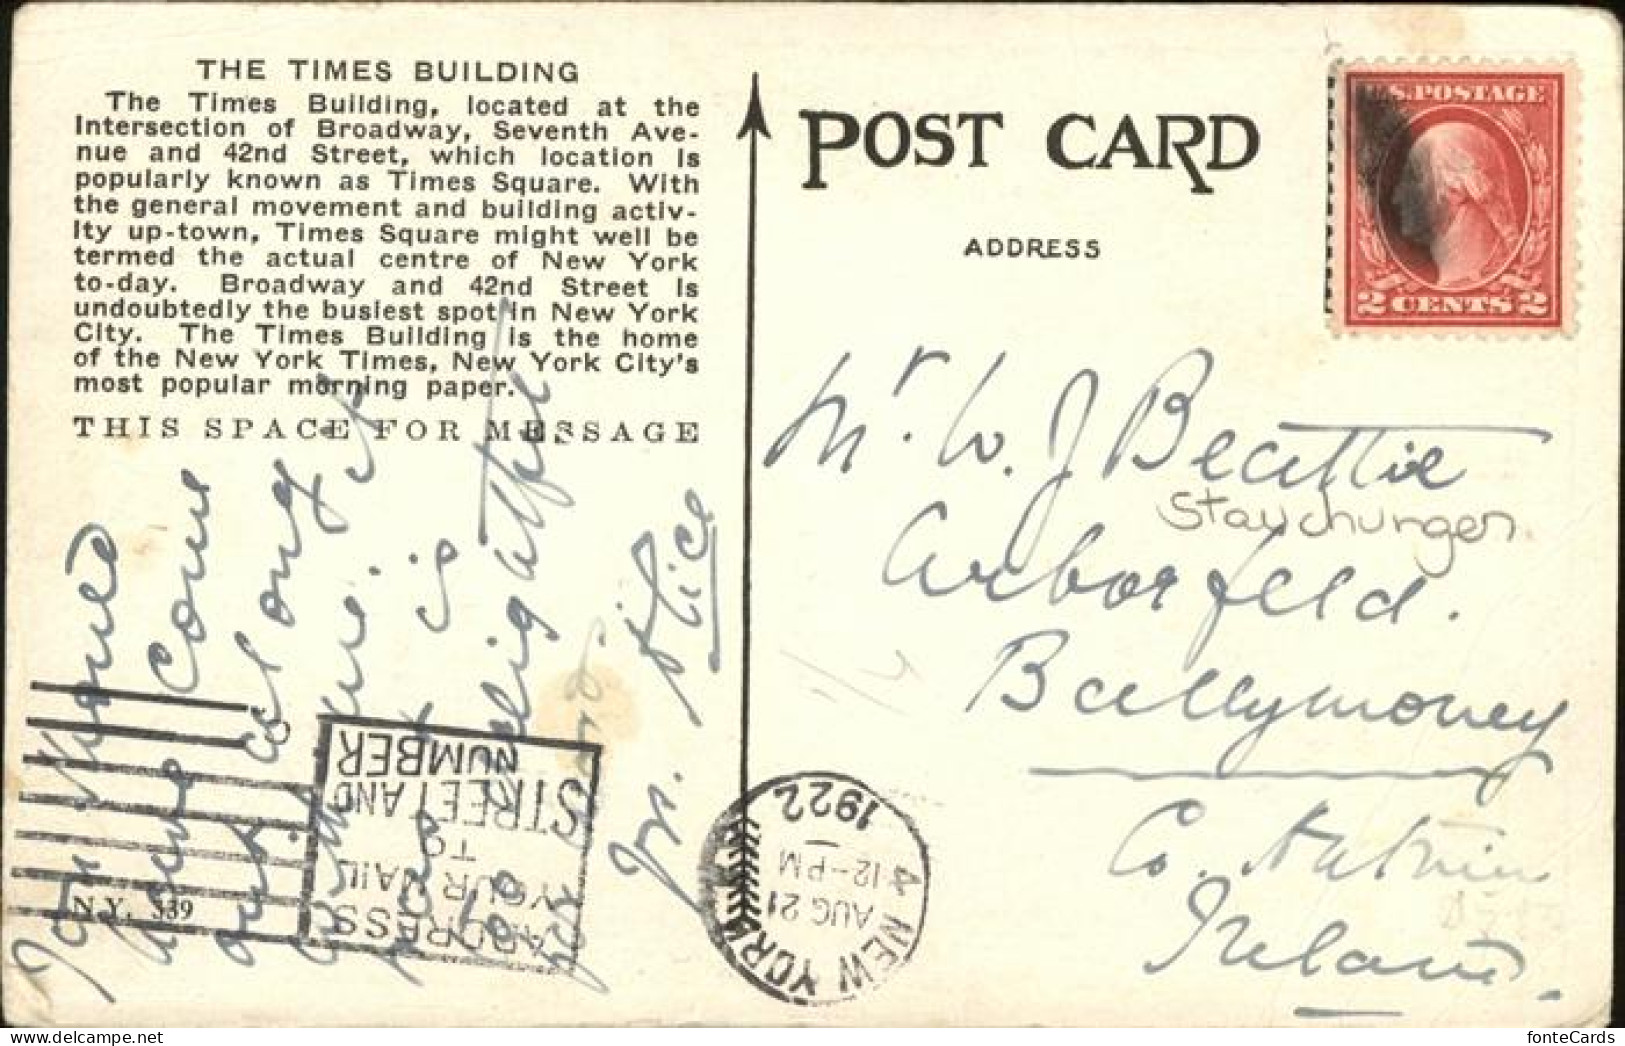 THE TIMES BUILDING
The Times Building, located at the
Intersection of Broadway, Seventh Ave-
nue and 42nd Street, which location is
popularly known as Times Square. With
the general movement and building activ-
ity up-town, Times Square might well be
termed the actual centre of New York
to-day. Broadway and 42nd Street is
undoubtedly the busiest spot in New York
City. The Times Building is the home
of the New York Times, New York City's
most popular morning paper.
THIS SPACE FOR MESSAGE
You
come
out along
with me.
is
Alice
N.Y. 339
ADDRESS
YOUR MAIL
TO
STREET AND
NUMBER
NEW YORK
AUG 21
12-PM
1922
POST CARD
ADDRESS
U.S. POSTAGE
2 CENTS 2
Mr. W. J Beattie
Staychurgen
Arborfeld.
Ballymoney
Co. Antrim
Ireland.
fonteCards